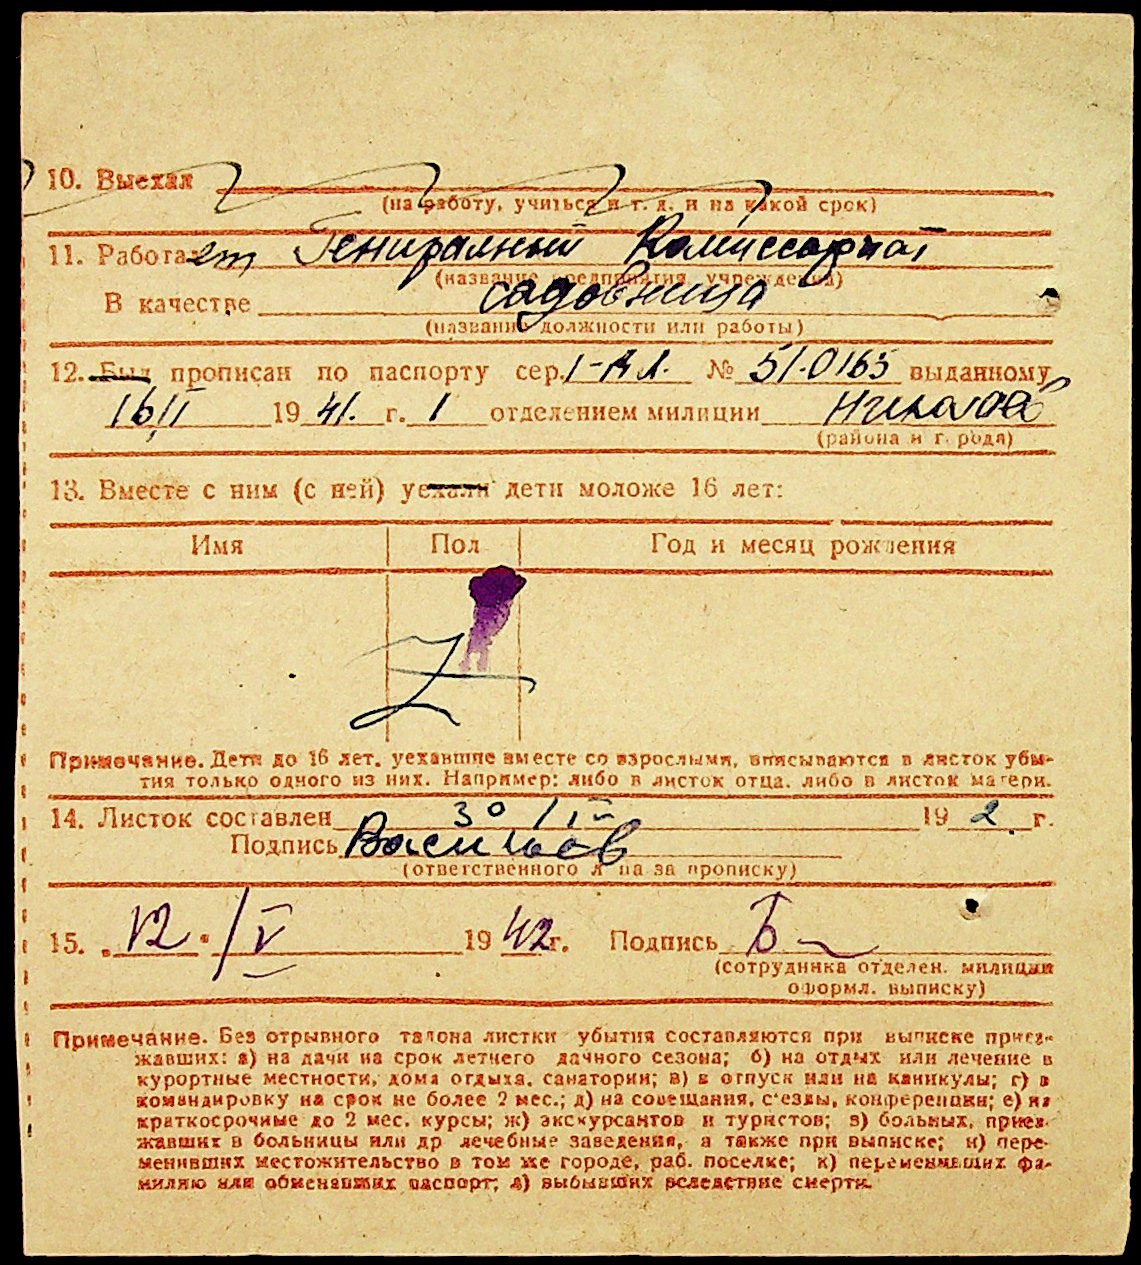 10. Выехал
(на работу, учиться и т. д. и на какой срок)
11. Работает Гениралний Комиссариат
(название предприятия, учреждения)
В качестве садовница
(название должности или работы)
12. Был прописан по паспорту сер. 1-АЛ. № 510165 выданному
16/II 1941. г. 1 отделением милиции Николаев
(района и города)
13. Вместе с ним (с ней) уехали дети моложе 16 лет:
Имя Пол Год и месяц рождения
Z
Примечание. Дети до 16 лет, уехавшие вместе со взрослыми, вписываются в листок убы-
тия только одного из них. Например: либо в листок отца, либо в листок матери.
14. Листок составлен 30/IV 192 г.
Подпись Васильев
(ответственного лица за прописку)
15. „12“ /V 1942 г. Подпись Б
(сотрудника отделен. милиции
оформл. выписку)
Примечание. Без отрывного талона листки убытия составляются при выписке приез-
жавших: а) на дачи на срок летнего дачного сезона; б) на отдых или лечение в
курортные местности, дома отдыха, санатории; в) в отпуск или на каникулы; г) в
командировку на срок не более 2 мес.; д) на совещания, с'езды, конференции; е) на
краткосрочные до 2 мес. курсы; ж) экскурсантов и туристов; з) больных, приез-
жавших в больницы или др лечебные заведения, а также при выписке; и) пере-
менивших местожительство в том же городе, раб. поселке; к) переменивших фа-
милию или обменявших паспорт; л) выбывших вследствие смерти.